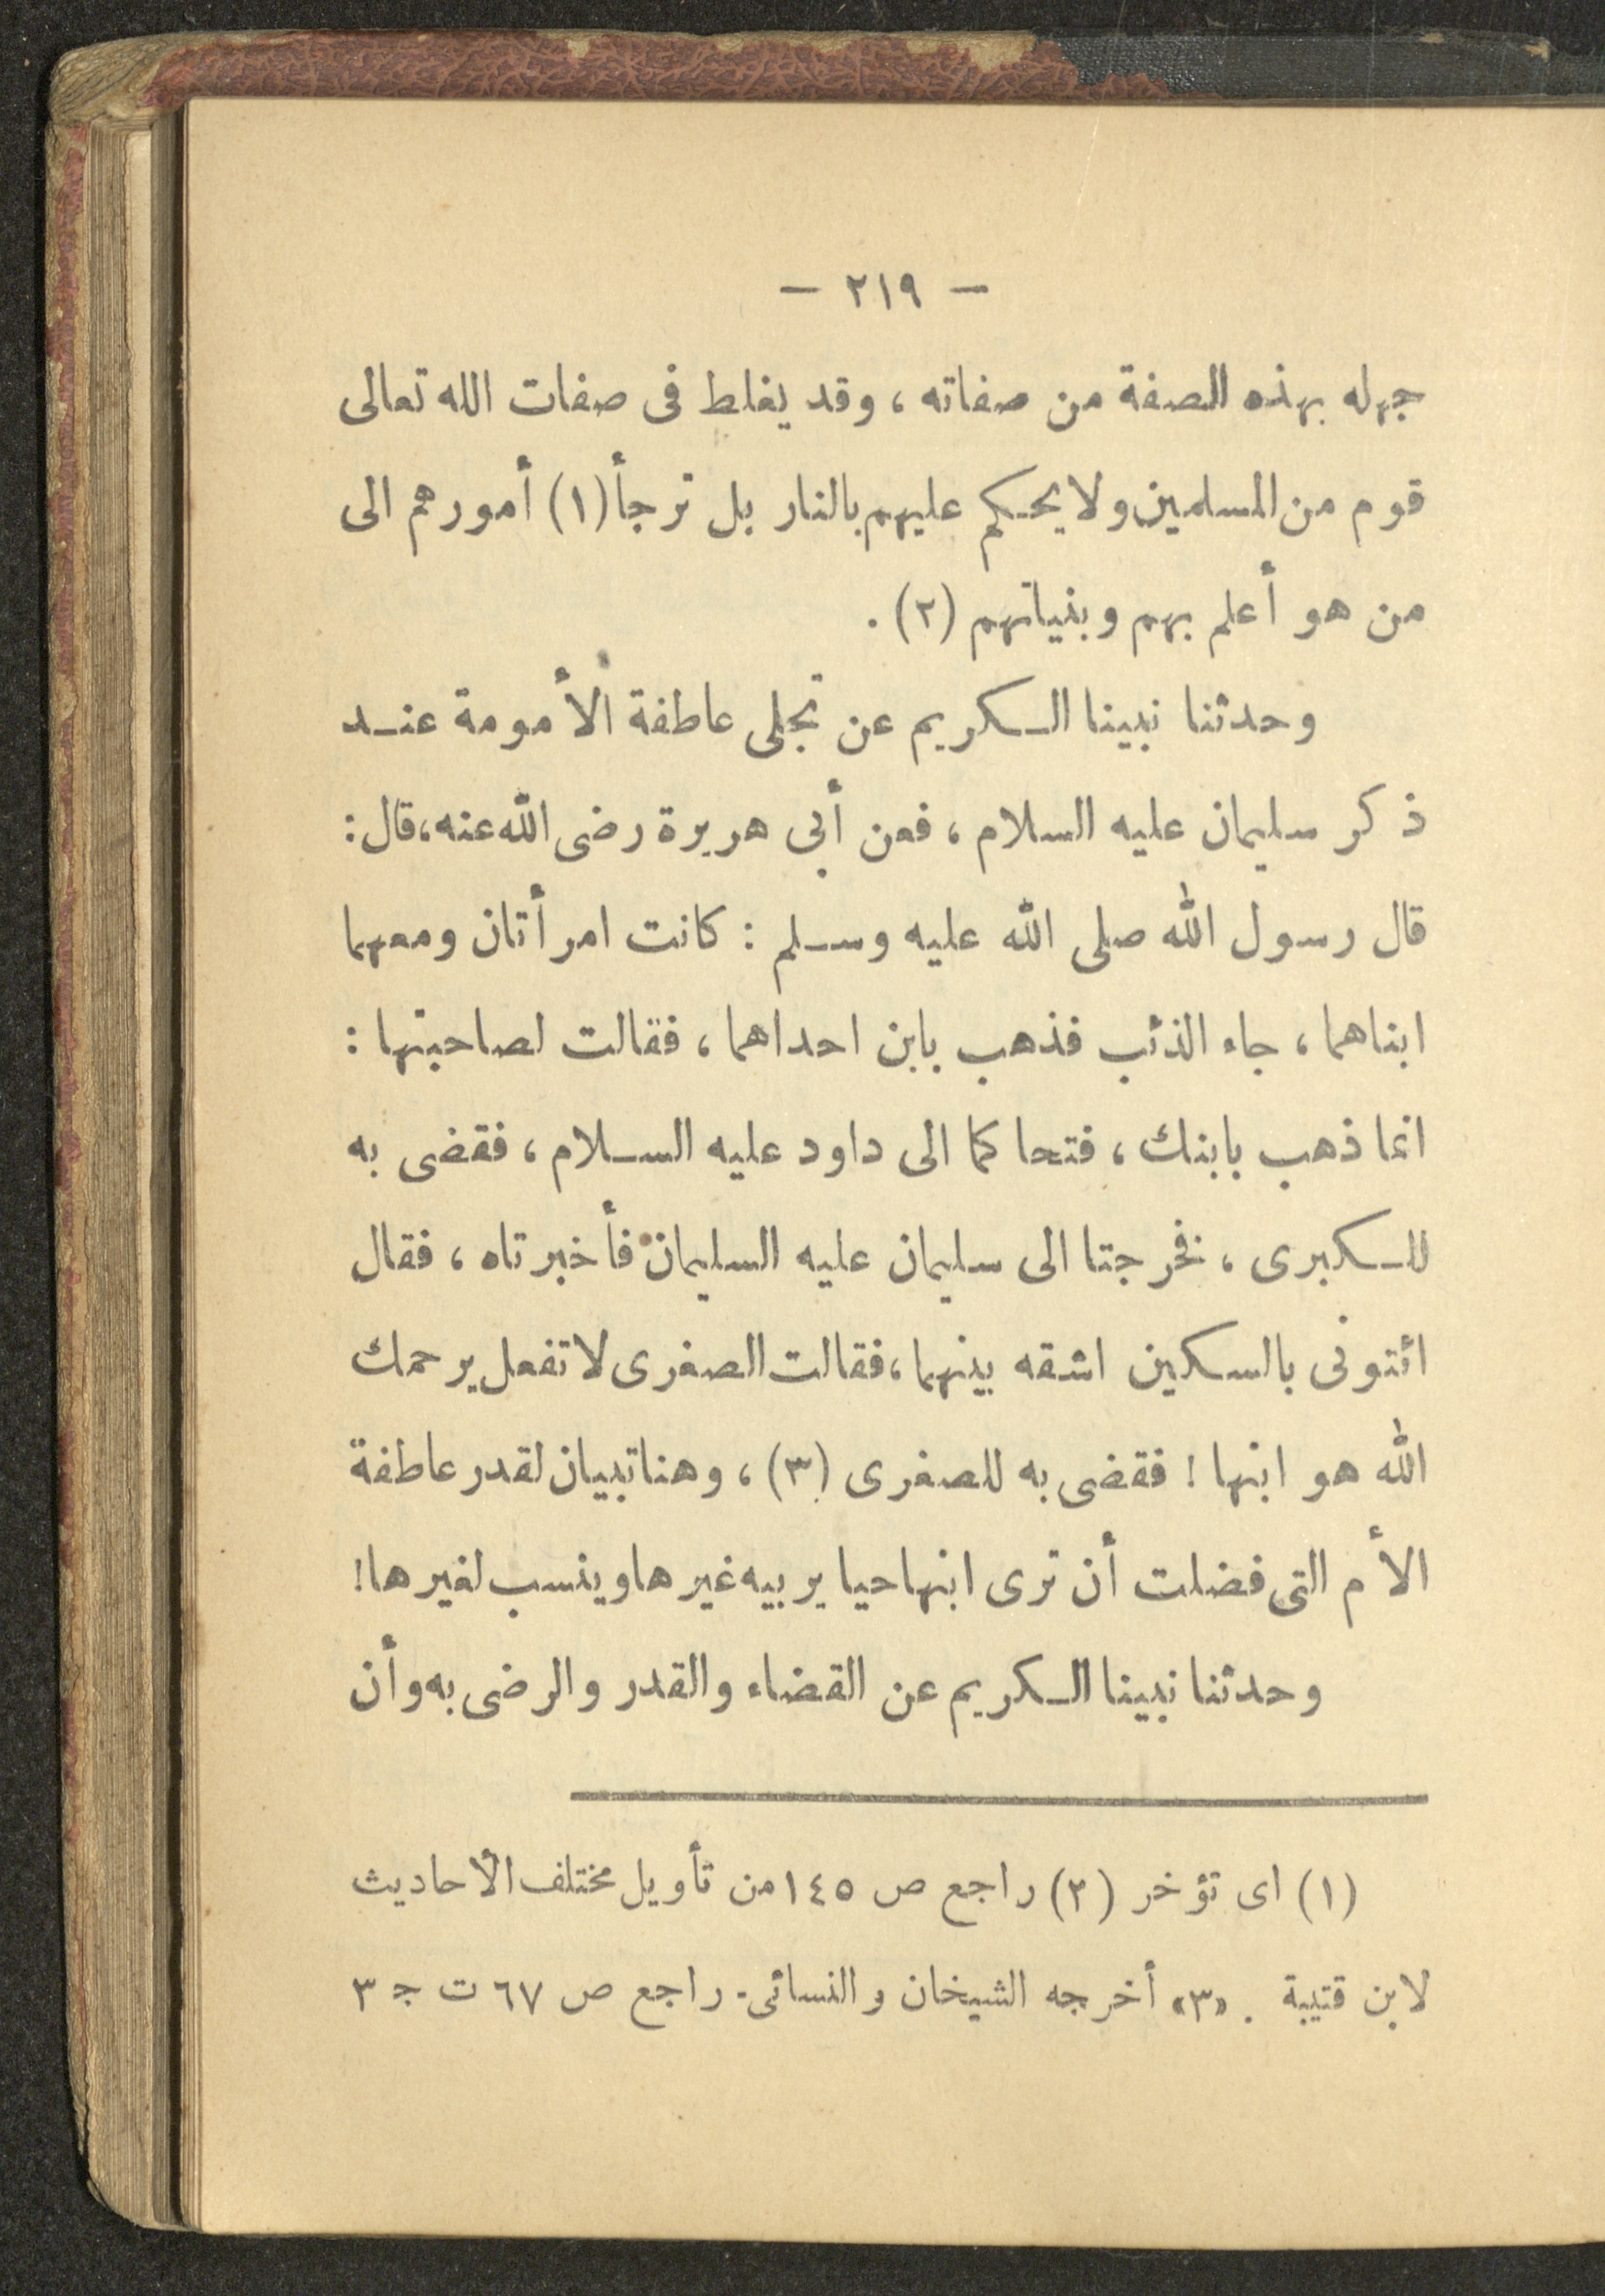 — ٢١٩ —
جهله بهذه الصفة من صفاته ، وقد يغلط فى صفات الله تعالى
قوم من المسلمين ولا يحكم عليهم بالنار بل ترجأ (١) أمورهم الى
من هو أعلم بهم وبنياتهم (٢) .
وحدثنا نبينا الكريم عن تجلى عاطفة الأمومة عند
ذكر سليمان عليه السلام ، فعن أبى هريرة رضى الله عنه ، قال :
قال رسول الله صلى الله عليه وسلم : كانت امرأتان ومعهما
ابناهما ، جاء الذئب فذهب بابن احداهما ، فقالت لصاحبتها :
انما ذهب بابنك ، فتحاكما الى داود عليه السلام ، فقضى به
للكبرى ، فخرجتا الى سليمان عليه السليمان فأخبرتاه ، فقال
ائتونى بالسكين اشقه بينهما ، فقالت الصغرى لا تفعل يرحمك
الله هو ابنها ! فقضى به للصغرى (٣) ، وهنا تبيان لقدر عاطفة
الأم التى فضلت أن ترى ابنها حيا يربيه غيرها وينسب لغيرها !
وحدثنا نبينا الكريم عن القضاء والقدر والرضى به وأن
(١) اى تؤخر (٢) راجع ص ١٤٥ من تأويل مختلف الأحاديث
لابن قتيبة . «٣» أخرجه الشيخان والنسائى - راجع ص ٦٧ ت ج ٣